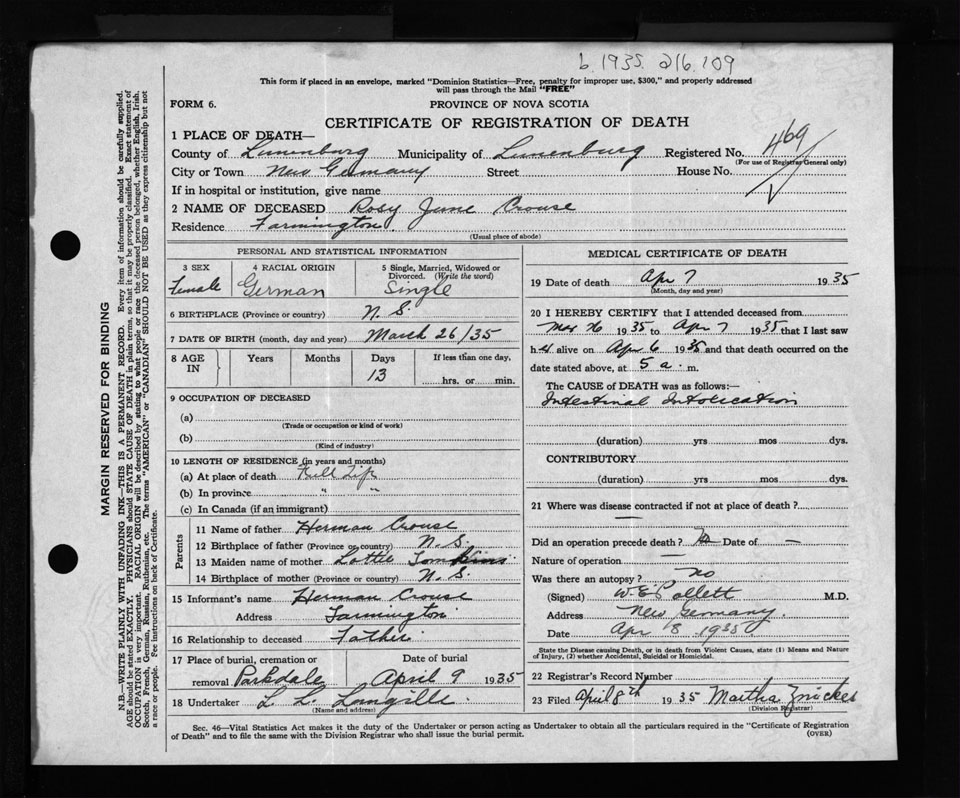 b. 1935. 216.109
This form if placed in an envelope, marked "Dominion Statistics—Free, penalty for improper use, $300," and properly addressed
will pass through the Mail "FREE"
FORM 6.
PROVINCE OF NOVA SCOTIA
CERTIFICATE OF REGISTRATION OF DEATH
1 PLACE OF DEATH—
County of Lunenburg Municipality of Lunenburg Registered No. 469
(For use of Registrar General only)
City or Town New Germany Street House No.
If in hospital or institution, give name
2 NAME OF DECEASED Roby June Crouse
Residence Farmington
(Usual place of abode)
PERSONAL AND STATISTICAL INFORMATION
3 SEX 4 RACIAL ORIGIN 5 Single, Married, Widowed or
Divorced. (Write the word)
Female German Single
6 BIRTHPLACE (Province or country) N. S.
7 DATE OF BIRTH (month, day and year) March 26/35
8 AGE IN Years Months Days If less than one day,
13 hrs. or min.
9 OCCUPATION OF DECEASED
(a)
(Trade or occupation or kind of work)
(b)
(Kind of industry)
10 LENGTH OF RESIDENCE (in years and months)
(a) At place of death Full Life
(b) In province " "
(c) In Canada (if an immigrant)
Parents
11 Name of father Herman Crouse
12 Birthplace of father (Province or country) N. S.
13 Maiden name of mother Lottie Tomkins
14 Birthplace of mother (Province or country) N. S.
15 Informant's name Herman Crouse
Address Farmington
16 Relationship to deceased Father
17 Place of burial, cremation or Date of burial
removal Parkdale April 9 1935
18 Undertaker L. L. Langille
(Name and address)
MEDICAL CERTIFICATE OF DEATH
19 Date of death Apr 7 1935
(Month, day and year)
20 I HEREBY CERTIFY that I attended deceased from
Mar 26 1935 to Apr 7 1935 that I last saw
h er alive on Apr 6 1935 and that death occurred on the
date stated above, at 5 a. m.
The CAUSE OF DEATH was as follows:—
Intestinal Intoxication
(duration) yrs mos dys.
CONTRIBUTORY
(duration) yrs mos dys.
21 Where was disease contracted if not at place of death?
—
Did an operation precede death? No Date of —
Nature of operation —
Was there an autopsy? no
(Signed) W.E. Pollett M.D.
Address New Germany.
Date Apr 8 1935
State the Disease causing Death, or in death from Violent Causes, state (1) Means and Nature
of Injury, (2) whether Accidental, Suicidal or Homicidal.
22 Registrar's Record Number
23 Filed April 8th 1935 Martha Zwicker
(Division Registrar)
Sec. 46—Vital Statistics Act makes it the duty of the Undertaker or person acting as Undertaker to obtain all the particulars required in the "Certificate of Registration
of Death" and to file the same with the Division Registrar who shall issue the burial permit.
(OVER)
MARGIN RESERVED FOR BINDING
N.B.—WRITE PLAINLY WITH UNFADING INK—THIS IS A PERMANENT RECORD. Every item of information should be carefully supplied.
AGE should be stated EXACTLY. PHYSICIANS should STATE CAUSE OF DEATH in plain terms, so that it may be properly classified. Exact statement of
OCCUPATION is very important. RACIAL ORIGIN will be described by stating to what people or race the deceased person belonged, whether English, Irish,
Scotch, French, German, Russian, Ruthenian, etc. The terms "AMERICAN" or "CANADIAN" SHOULD NOT BE USED as they express citizenship but not
a race or people. See instructions on back of Certificate.